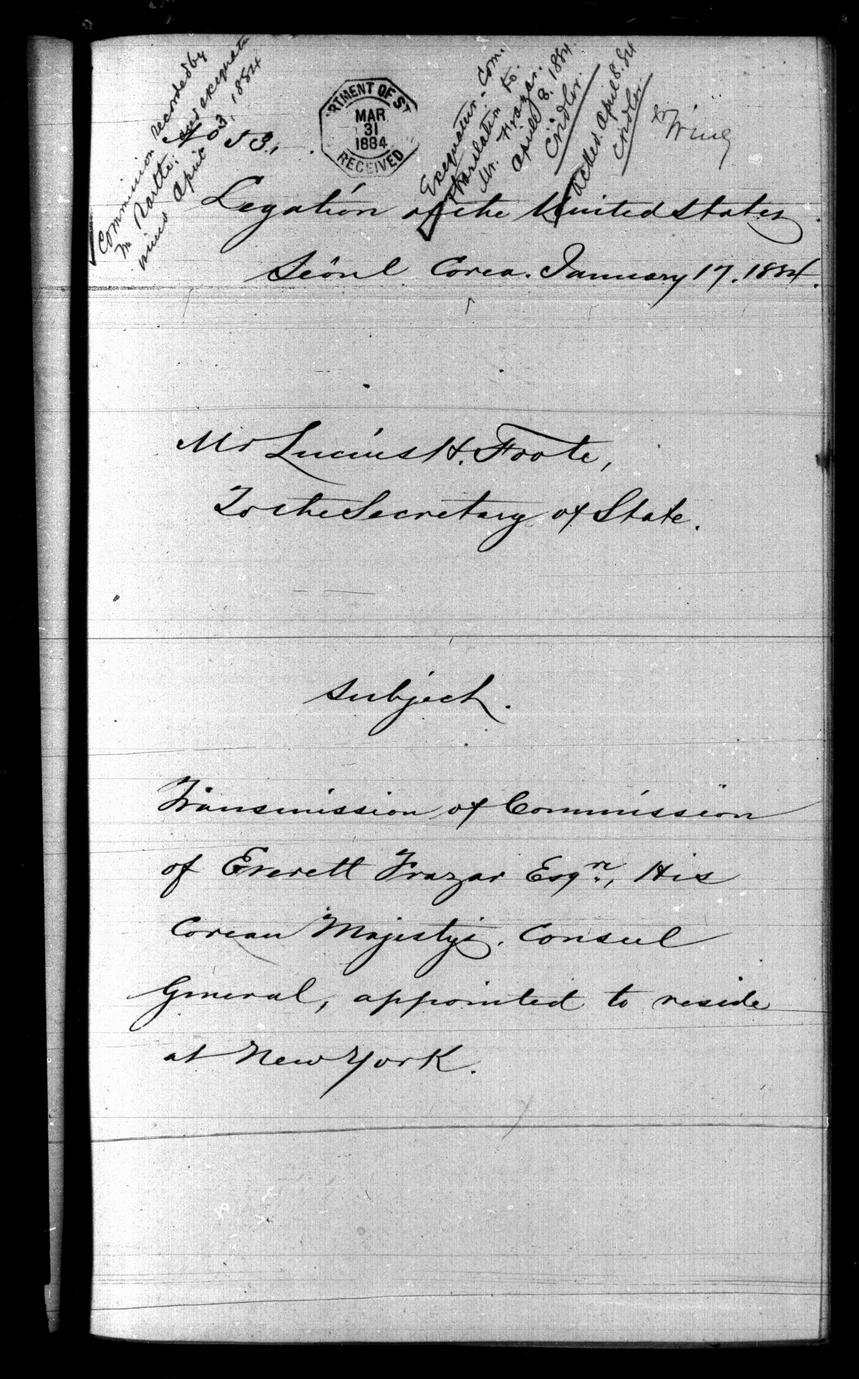 Commission recorded by
Mr. and exequatur
April 3, 1884
No 53.
DEPARTMENT OF ST
MAR
31
1884
RECEIVED
Exequatur, Com.
translation to
Mr. Frazar.
April 8. 1884.
Cridler.
Acked April 8. 84
Cridler.
Legation of the United States.
Seoul Corea. January 17. 1884.
Mr Lucius H. Foote,
To the Secretary of State.
Subject.
Transmission of Commission
of Everett Frazar Esqre, His
Corean Majesty's, Consul
General, appointed to reside
at New York.